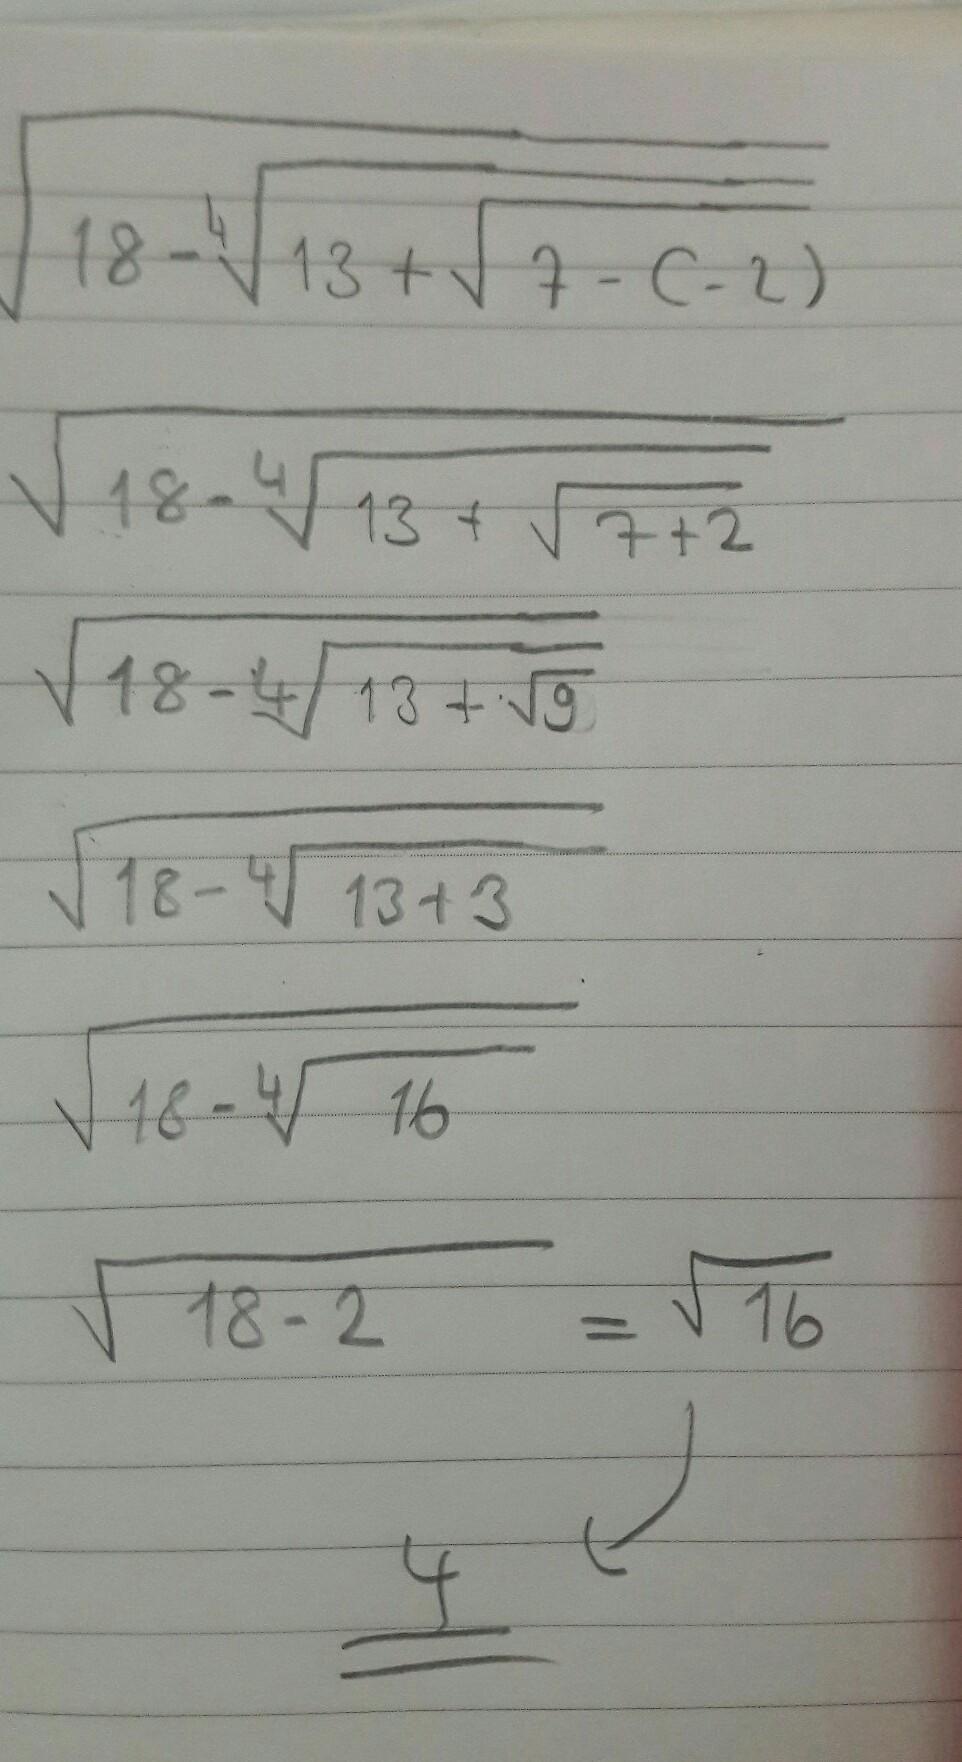 √(18-⁴√(13+√(7-(-2))))
√(18-⁴√(13+√(7+2)))
√(18-⁴√(13+√9))
√(18-⁴√(13+3))
√(18-⁴√16)
√(18-2) = √16
4